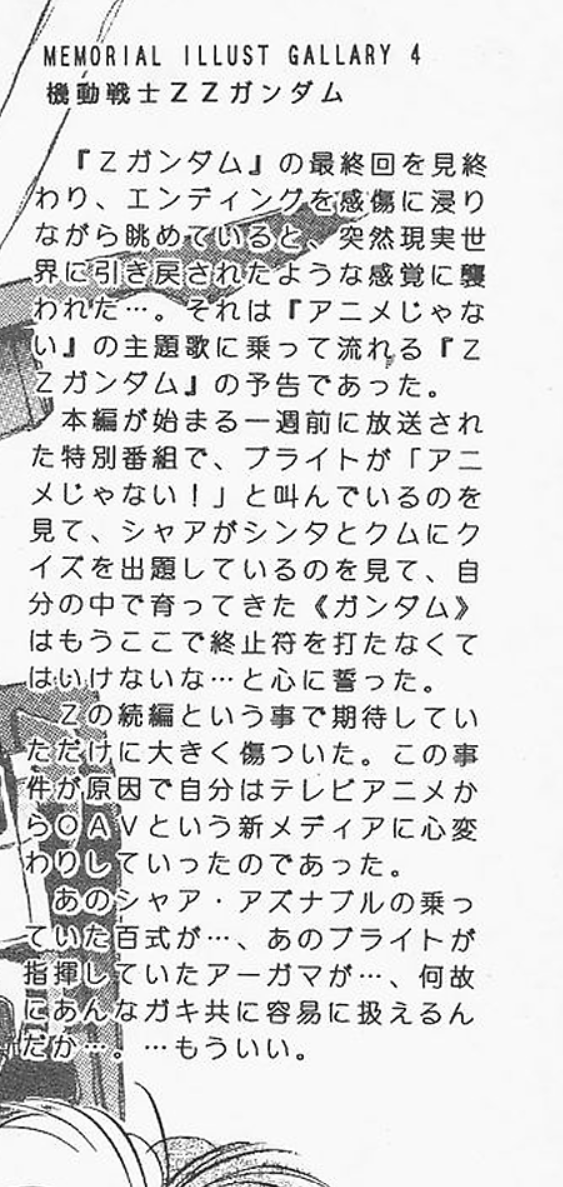 MEMORIAL ILLUST GALLARY 4
機動戦士ZZガンダム
『Zガンダム』の最終回を見終
わり、エンディングを感傷に浸り
ながら眺めていると、突然現実世
界に引き戻されたような感覚に襲
われた…。それは『アニメじゃな
い』の主題歌に乗って流れる『Z
Zガンダム』の予告であった。
本編が始まる一週前に放送され
た特別番組で、ブライトが「アニ
メじゃない!」と叫んでいるのを
見て、シャアがシンタとクムにク
イズを出題しているのを見て、自
分の中で育ってきた《ガンダム》
はもうここで終止符を打たなくて
はいけないな…と心に誓った。
Zの続編という事で期待してい
ただけに大きく傷ついた。この事
件が原因で自分はテレビアニメか
らOAVという新メディアに心変
わりしていったのであった。
あのシャア・アズナブルの乗っ
ていた百式が…、あのブライトが
指揮していたアーガマが…、何故
にあんなガキ共に容易に扱えるん
だか…。…もういい。